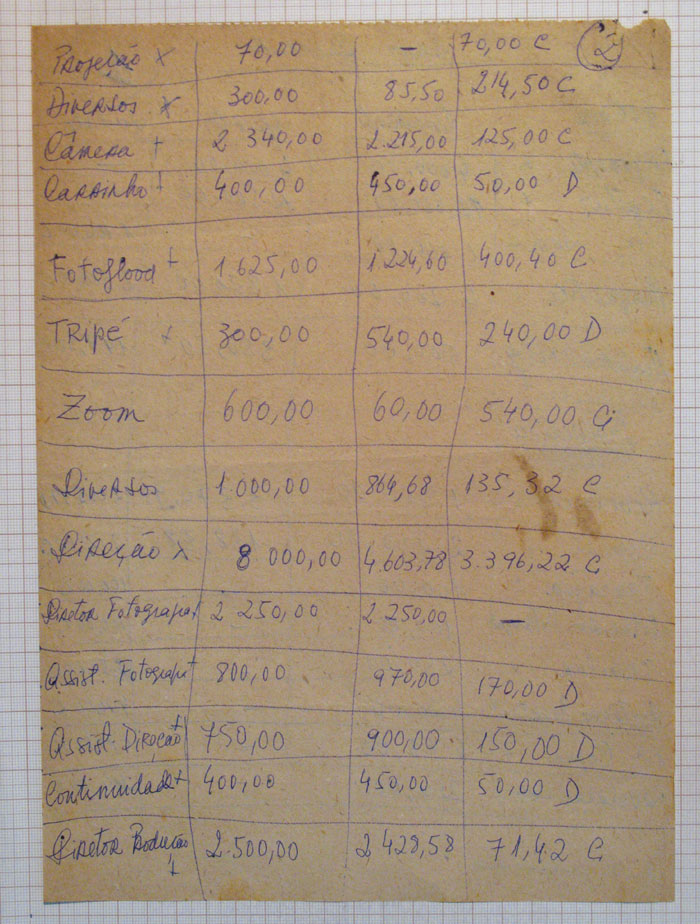 Projeção x 70,00 — 70,00 C 2
Diversos x 300,00 85,50 214,50 C
Câmera + 2.340,00 2.215,00 125,00 C
Carrinho + 400,00 450,00 50,00 D
Fotoflood + 1.625,00 1224,60 400,40 C
Tripé + 300,00 540,00 240,00 D
Zoom 600,00 60,00 540,00 C
Diversos 1.000,00 864,68 135,32 C
Direção x 8.000,00 4.603,78 3.396,22 C
Diretor Fotografia + 2.250,00 2.250,00 —
Assist. Fotografia + 800,00 970,00 170,00 D
Assist. Direção + 750,00 900,00 150,00 D
Continuidade + 400,00 450,00 50,00 D
Diretor Produção + 2.500,00 2.428,58 71,42 C